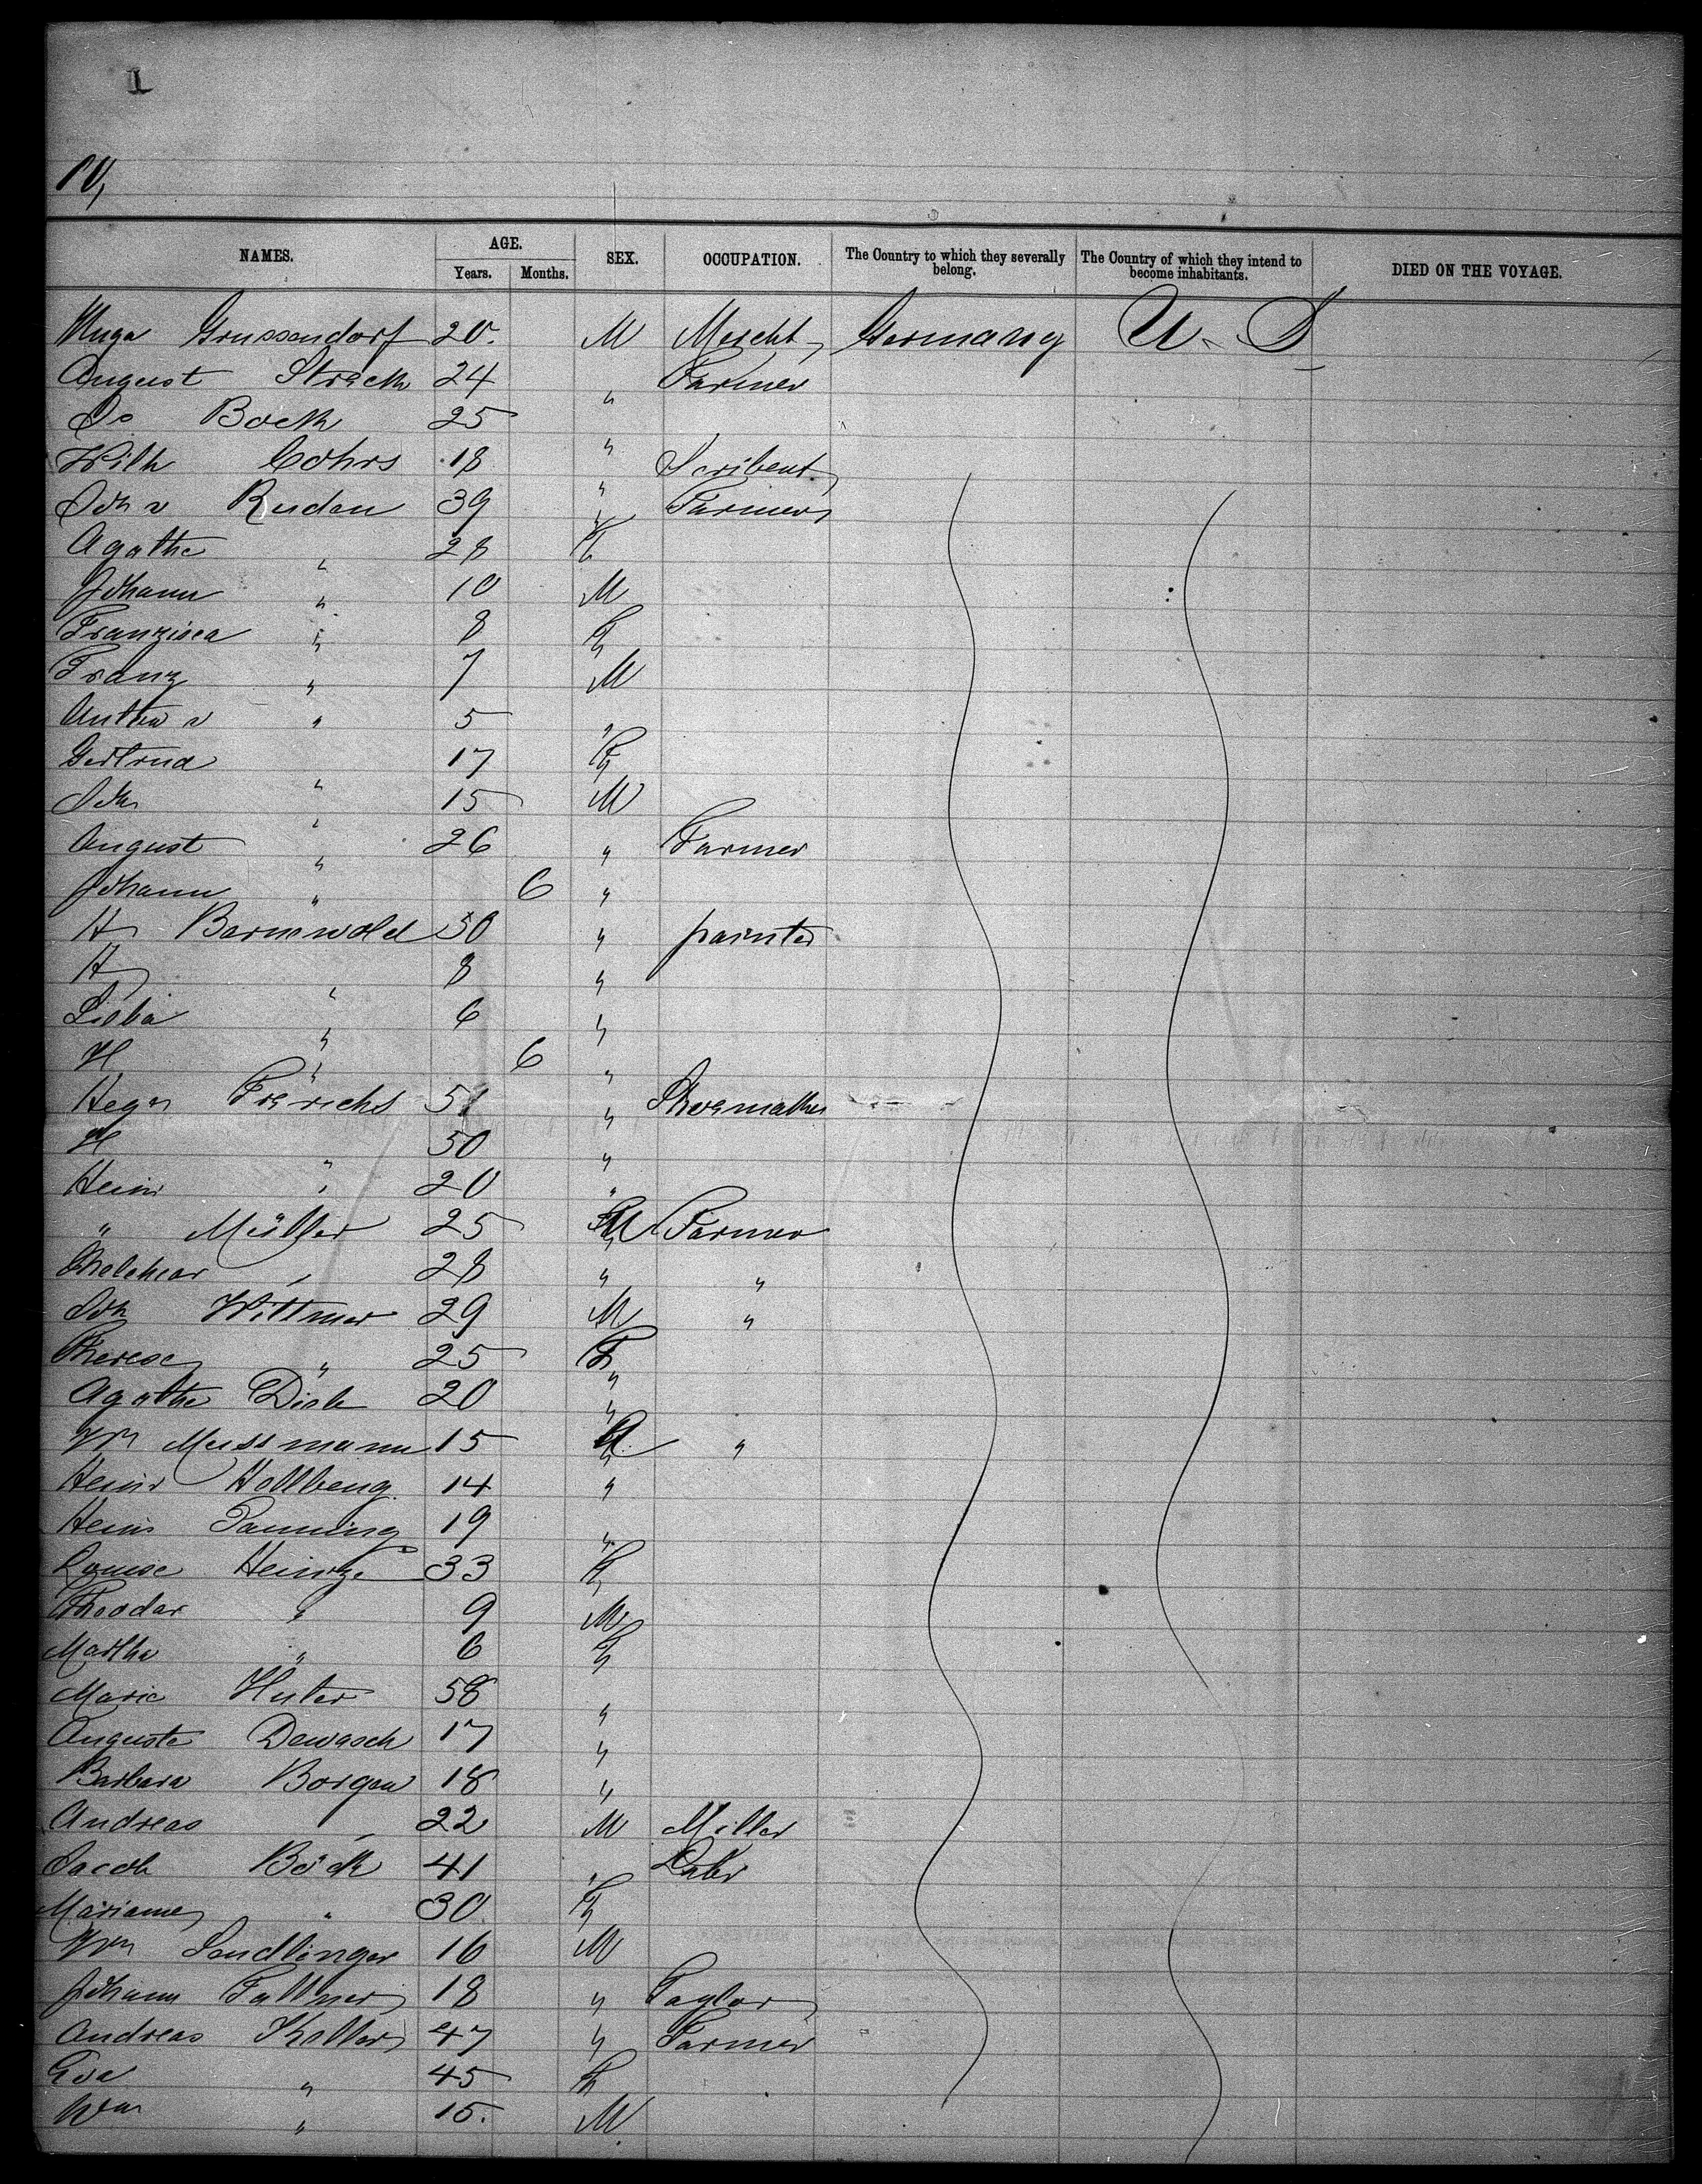 I
10,
NAMES. AGE. Years. Months. SEX. OCCUPATION. The Country to which they severally belong. The Country of which they intend to become inhabitants. DIED ON THE VOYAGE.
Hugo Grussendorf 20. M Mercht Germany U. S
August Strack 24 " Farmer
Jo Bock 25 "
Wilh Cohrs 18 " Scribent
Joh v Ruden 39 " Farmer
Agathe " 28 F
Johann " 10 M
Franzisca " 8 F
Franz " 7 M
Anton v " 5 "
Gertrud " 17 F
Joh " 15 M
August " 26 " Farmer
Johann " 6 "
H Barnewold 50 " painter
H " 8 "
" 6 "
H " 6 "
Frerichs 51 " Shoemaker
H " 50 "
Heinr " 20 "
" Müller 25 M Farmer
Melchior " 28 " "
Joh Wittmer 29 M "
Therese " 25 F
Agathe Dick 20 "
Wm Mussmann 15 M "
Heinr Hollberg 14 "
Heinr Panning 19 "
Louise Heinze 33 F
Theodor " 9 M
Martha " 6 F
Marie Huter 58 "
Auguste Dewasch 17 "
Barbara Borgen 18 "
Andreas " 22 M Miller
Jacob Böck 41 " Labr
Mariane " 30 F
Wm Sendlinger 16 M
Johann Fallmer 18 " Taylor
Andreas Koller 47 " Farmer
Eva " 45 F
Wm " 15. M.